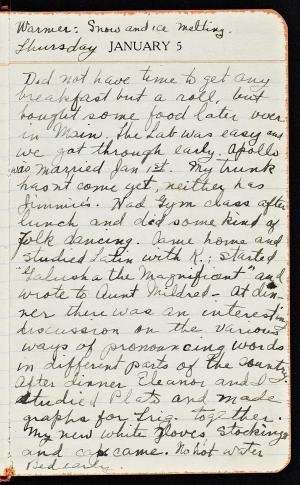 Warmer: Snow and ice melting.
Thursday JANUARY 5
Did not have time to get any
breakfast but a roll, but
bought some food later over
in Main. The Lab was easy and
we got through early. Apollo
was married Jan 1st. My trunk
hasn't come yet, neither has
Jimmie's. Had Gym class after
lunch and did some kind of
folk dancing. Came home and
studied Latin with K.; started
"Galusha the Magnificent" and
wrote to Aunt Mildred - At din-
ner there was an interesting
discussion on the various
ways of pronouncing words
in different parts of the country.
After dinner Eleanor and I
studied Plats and made
graphs for Trig. together.
My new white gloves, stockings
and cap came. No hot water
Bed early.